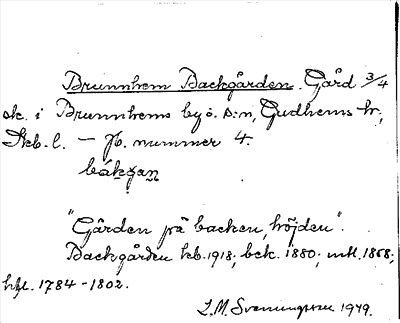 Brunnhem Backgården. Gård 3/4
sk. i Brunnhems by o. s:n, Gudhems hr,
Skb. l. — Jb. nummer 4.
"Gården på backen, höjden".
Backgården kb. 1918; bek. 1880; mtl. 1868;
hfl. 1784-1802.
L.M. Svenungsson 1949.